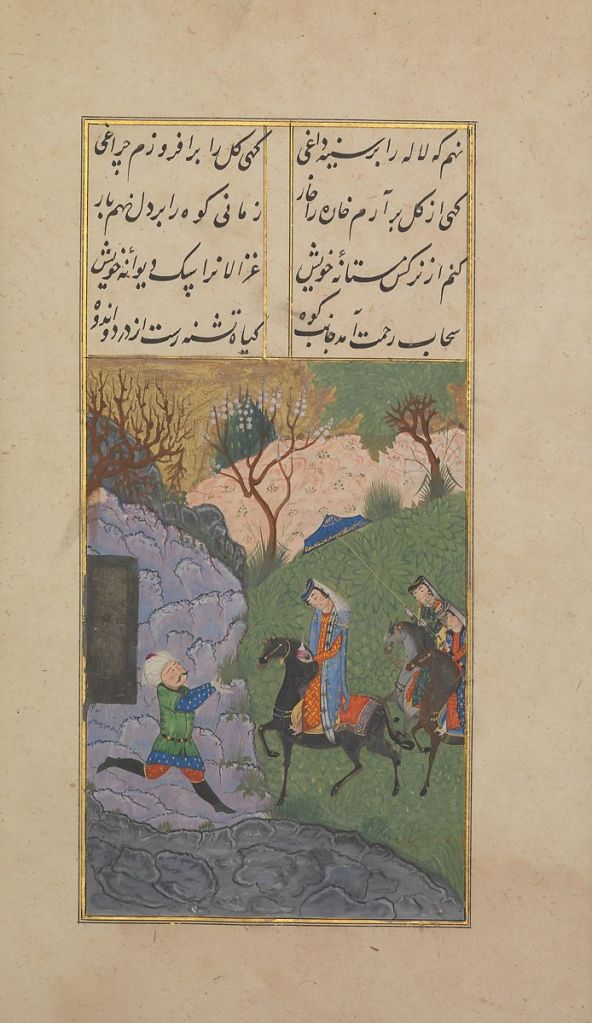 نهم که لاله را بر سینه داغی گهی گل را برافروزم چراغی
گهی از گل برآرم خاره را خار زمانی کوه را بر دل نهم بار
کنم از نرگس مستانهٔ خویش غزالانرا سگ دیوانهٔ خویش
سحاب رحمت آمد جانب کوه گیاه تشنه رست از درد و اندوه